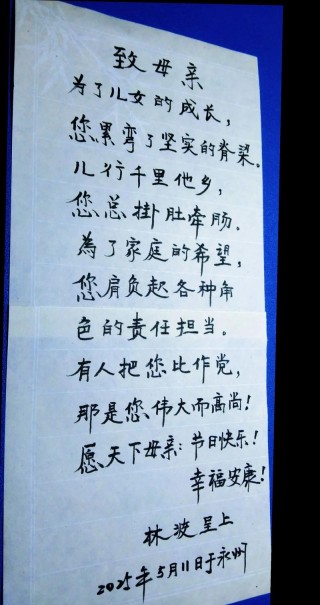 致母亲
为了儿女的成长，
您累弯了坚实的脊梁。
儿行千里他乡，
您总掛肚牵肠。
為了家庭的希望，
您肩负起各种角
色的责任担当。
有人把您比作党，
那是您伟大而高尚！
愿天下母亲：节日快乐！
幸福安康！
林波呈上
2025年5月11日于永州